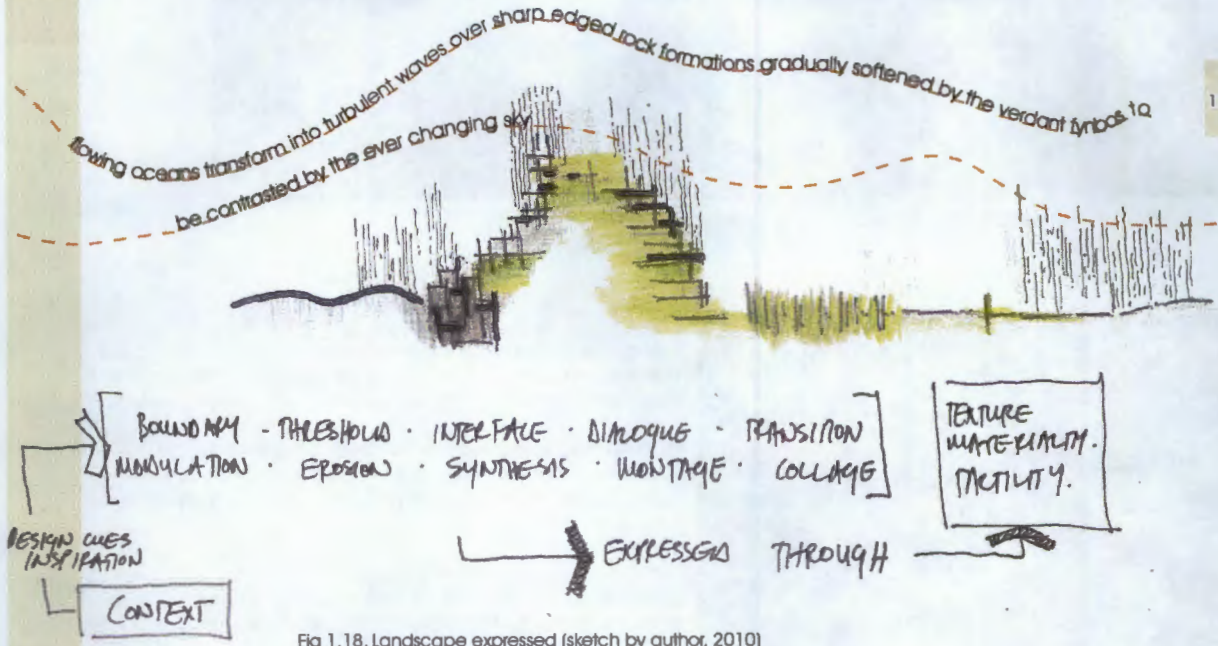 flowing oceans transform into turbulent waves over sharp edged rock formations gradually softened by the verdant fynbos to
be contrasted by the ever changing sky
1
BOUNDARY · THRESHOLD · INTERFACE · DIALOGUE · TRANSITION
MODULATION · EROSION · SYNTHESIS · MONTAGE · COLLAGE
TEXTURE
MATERIALITY.
TACTILITY.
DESIGN CUES
INSPIRATION
EXPRESSED THROUGH
CONTEXT
Fig 1.18. Landscape expressed (sketch by author, 2010)